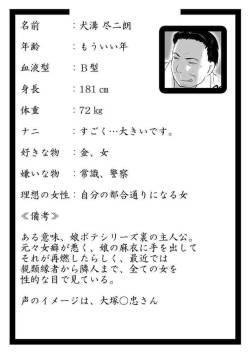 名前　：犬溝 尽二朗
年齢　：もういい年
血液型　：Ｂ型
身長　：181 ㎝
体重　：72 ㎏
ナニ　：すごく…大きいです。
好きな物　：金、女
嫌いな物　：常識、警察
理想の女性：自分の都合通りになる女
≪備考≫
ある意味、娘ボテシリーズ裏の主人公。
元々女癖が悪く、娘の麻衣に手を出して
それが再燃したらしく、最近では
親類縁者から隣人まで、全ての女を
性的な目で見ている。
声のイメージは、大塚〇忠さん